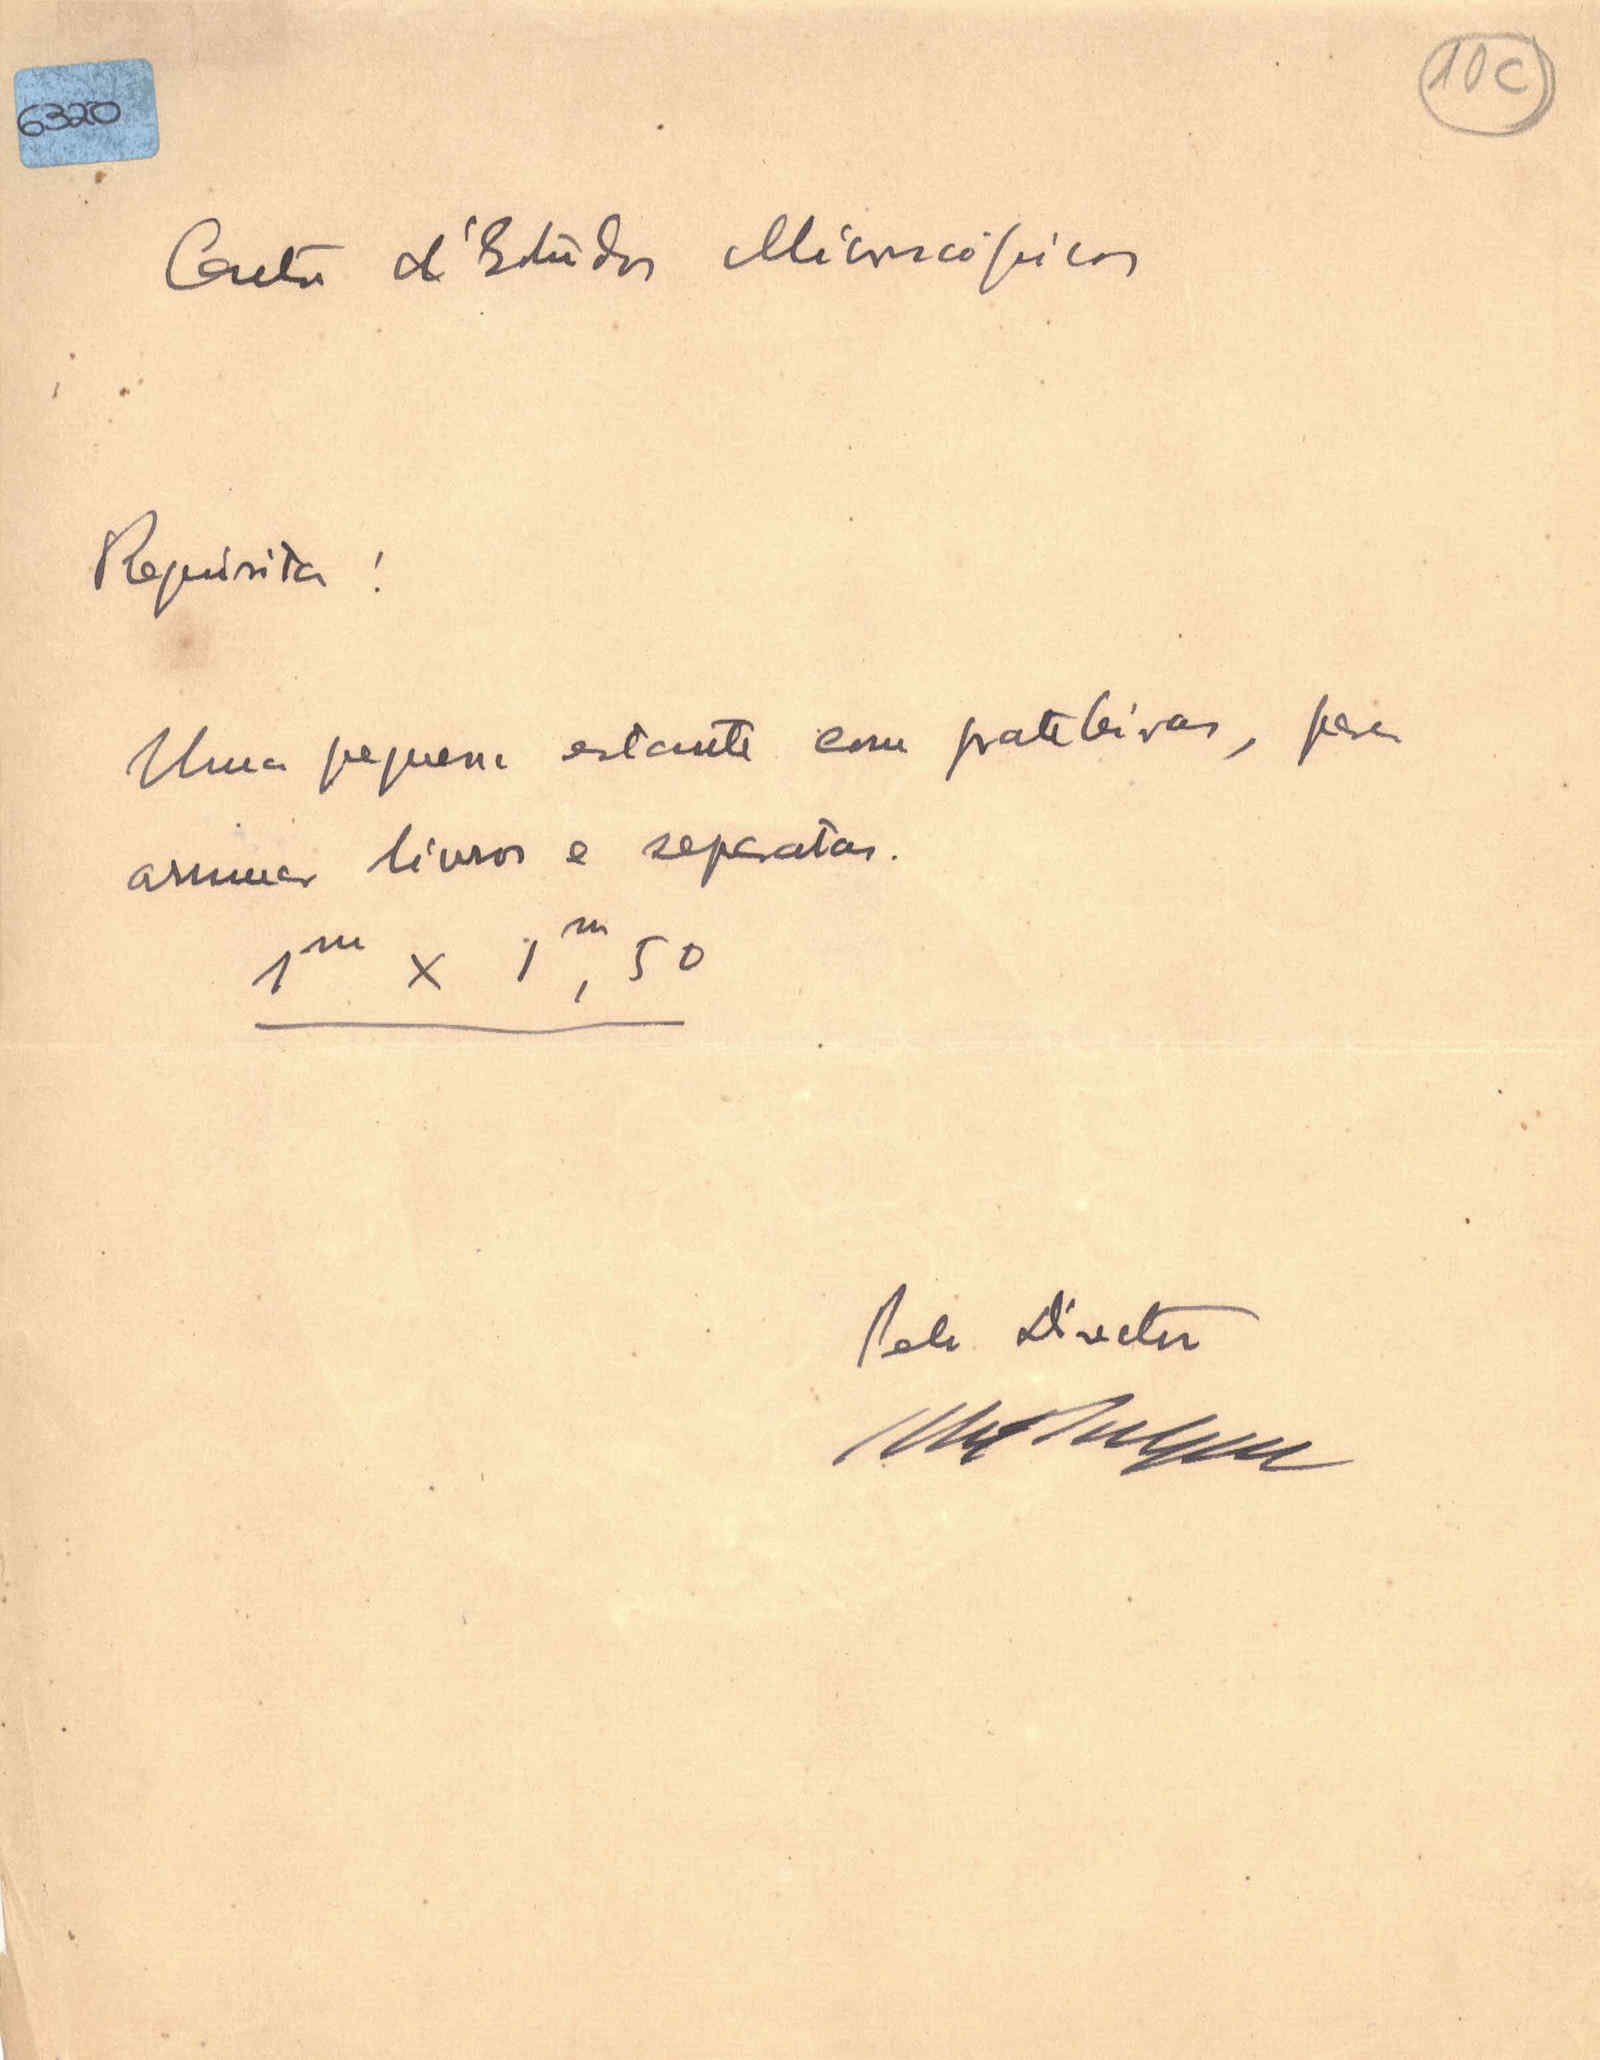 6320
10C
Centro d'Estudos Microscópicos
Requisita:
Uma pequena estante com prateleiras, para
arrumar livros e separatas.
1m x 1m,50
Pelo Director